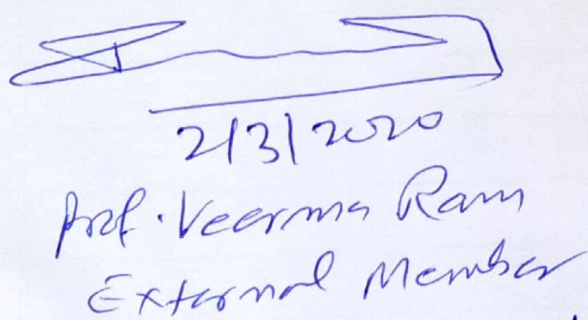 2/3/2020
Prof. Veerma Ram
External Member